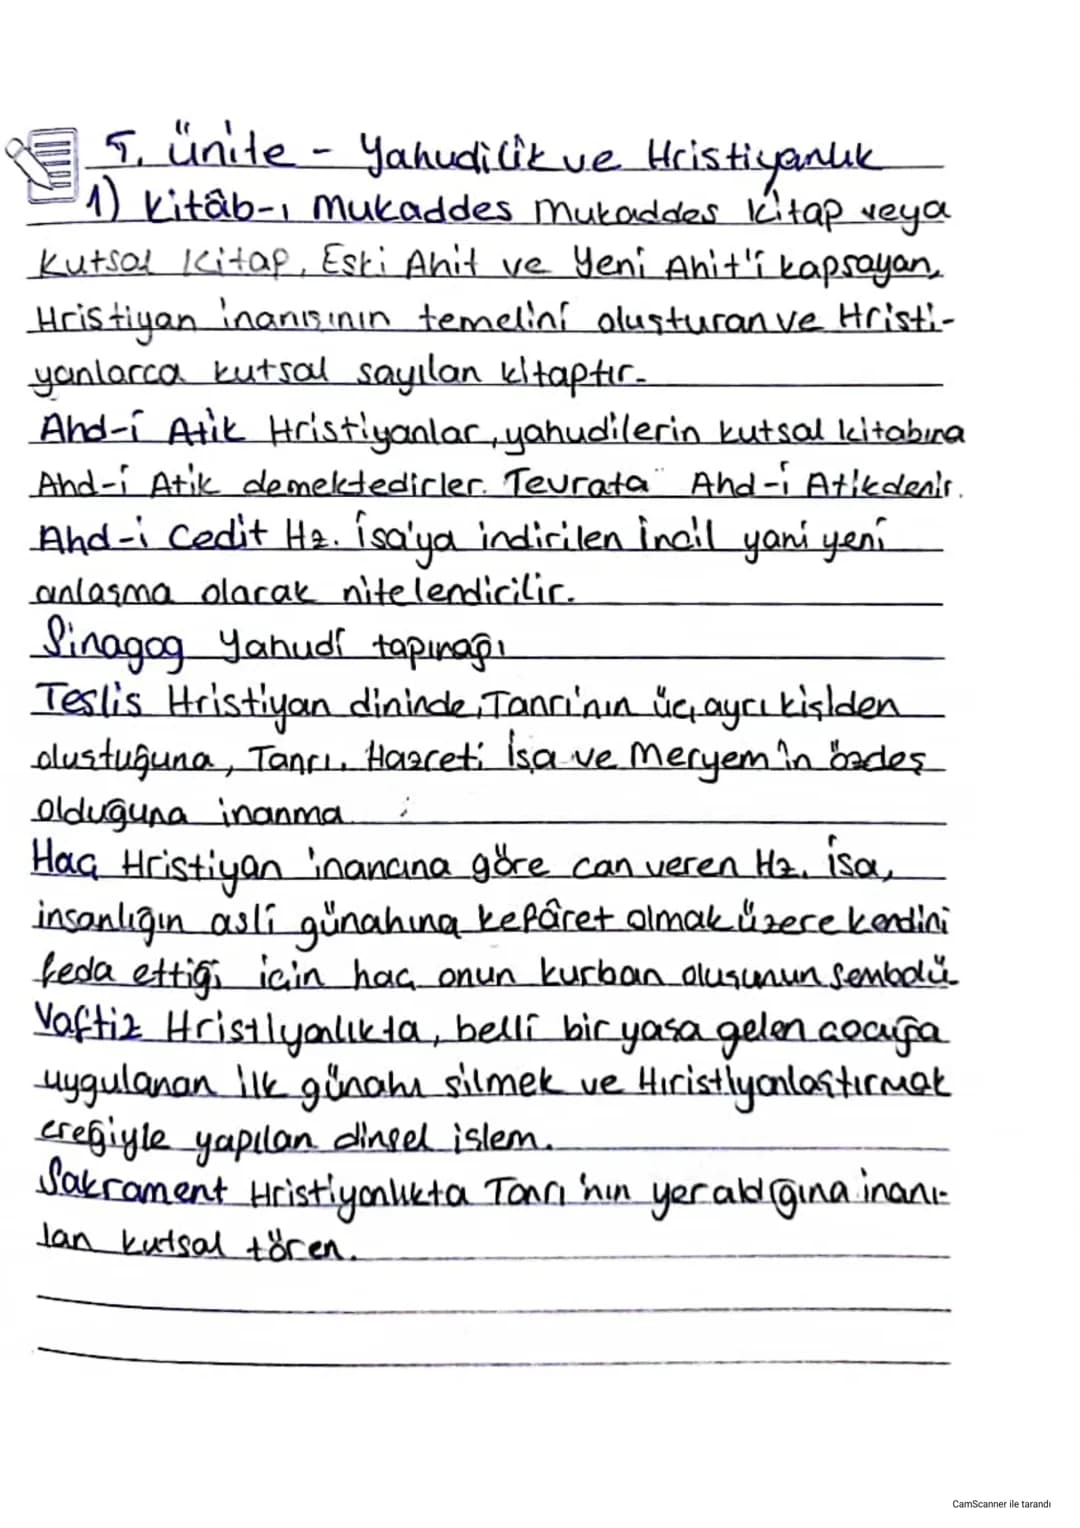 5. ünite - Yahudilik ve Hristiyanlık
1) Kitâb-ı Mukaddes Mukaddes Kitap veya
Kutsal Kitap, Eski Ahit ve Yeni Ahit'i kapsayan,
Hristiyan inanışının temelini oluşturan ve Hristi-
yanlarca kutsal sayılan kitaptır.
Ahd-i Atik Hristiyanlar, yahudilerin kutsal kitabına
Ahd-i Atik demektedirler. Tevrata Ahd-i Atikdenir.
Ahd-i Cedit Hz. İsa'ya indirilen İncil yani yeni
anlaşma olarak nitelendirilir.
Sinagog Yahudi tapınağı
Teslis Hristiyan dininde, Tanrı'nın üç ayrı kişiden
oluştuğuna, Tanrı, Hazreti İsa ve Meryem'in özdeş
olduğuna inanma
Haç Hristiyan inancına göre can veren Hz. İsa,
insanlığın aslî günahına kefâret olmak üzere kendini
feda ettiği için haç onun kurban oluşunun sembolü
Vaftiz Hristiyanlıkta, belli bir yaşa gelen çocuğa
uygulanan ilk günahı silmek ve Hıristiyanlaştırmak
ereğiyle yapılan dinsel işlem.
Sakrament Hristiyanlıkta Tanrı'nın yer aldığına inanı-
lan kutsal tören.
CamScanner ile tarandı